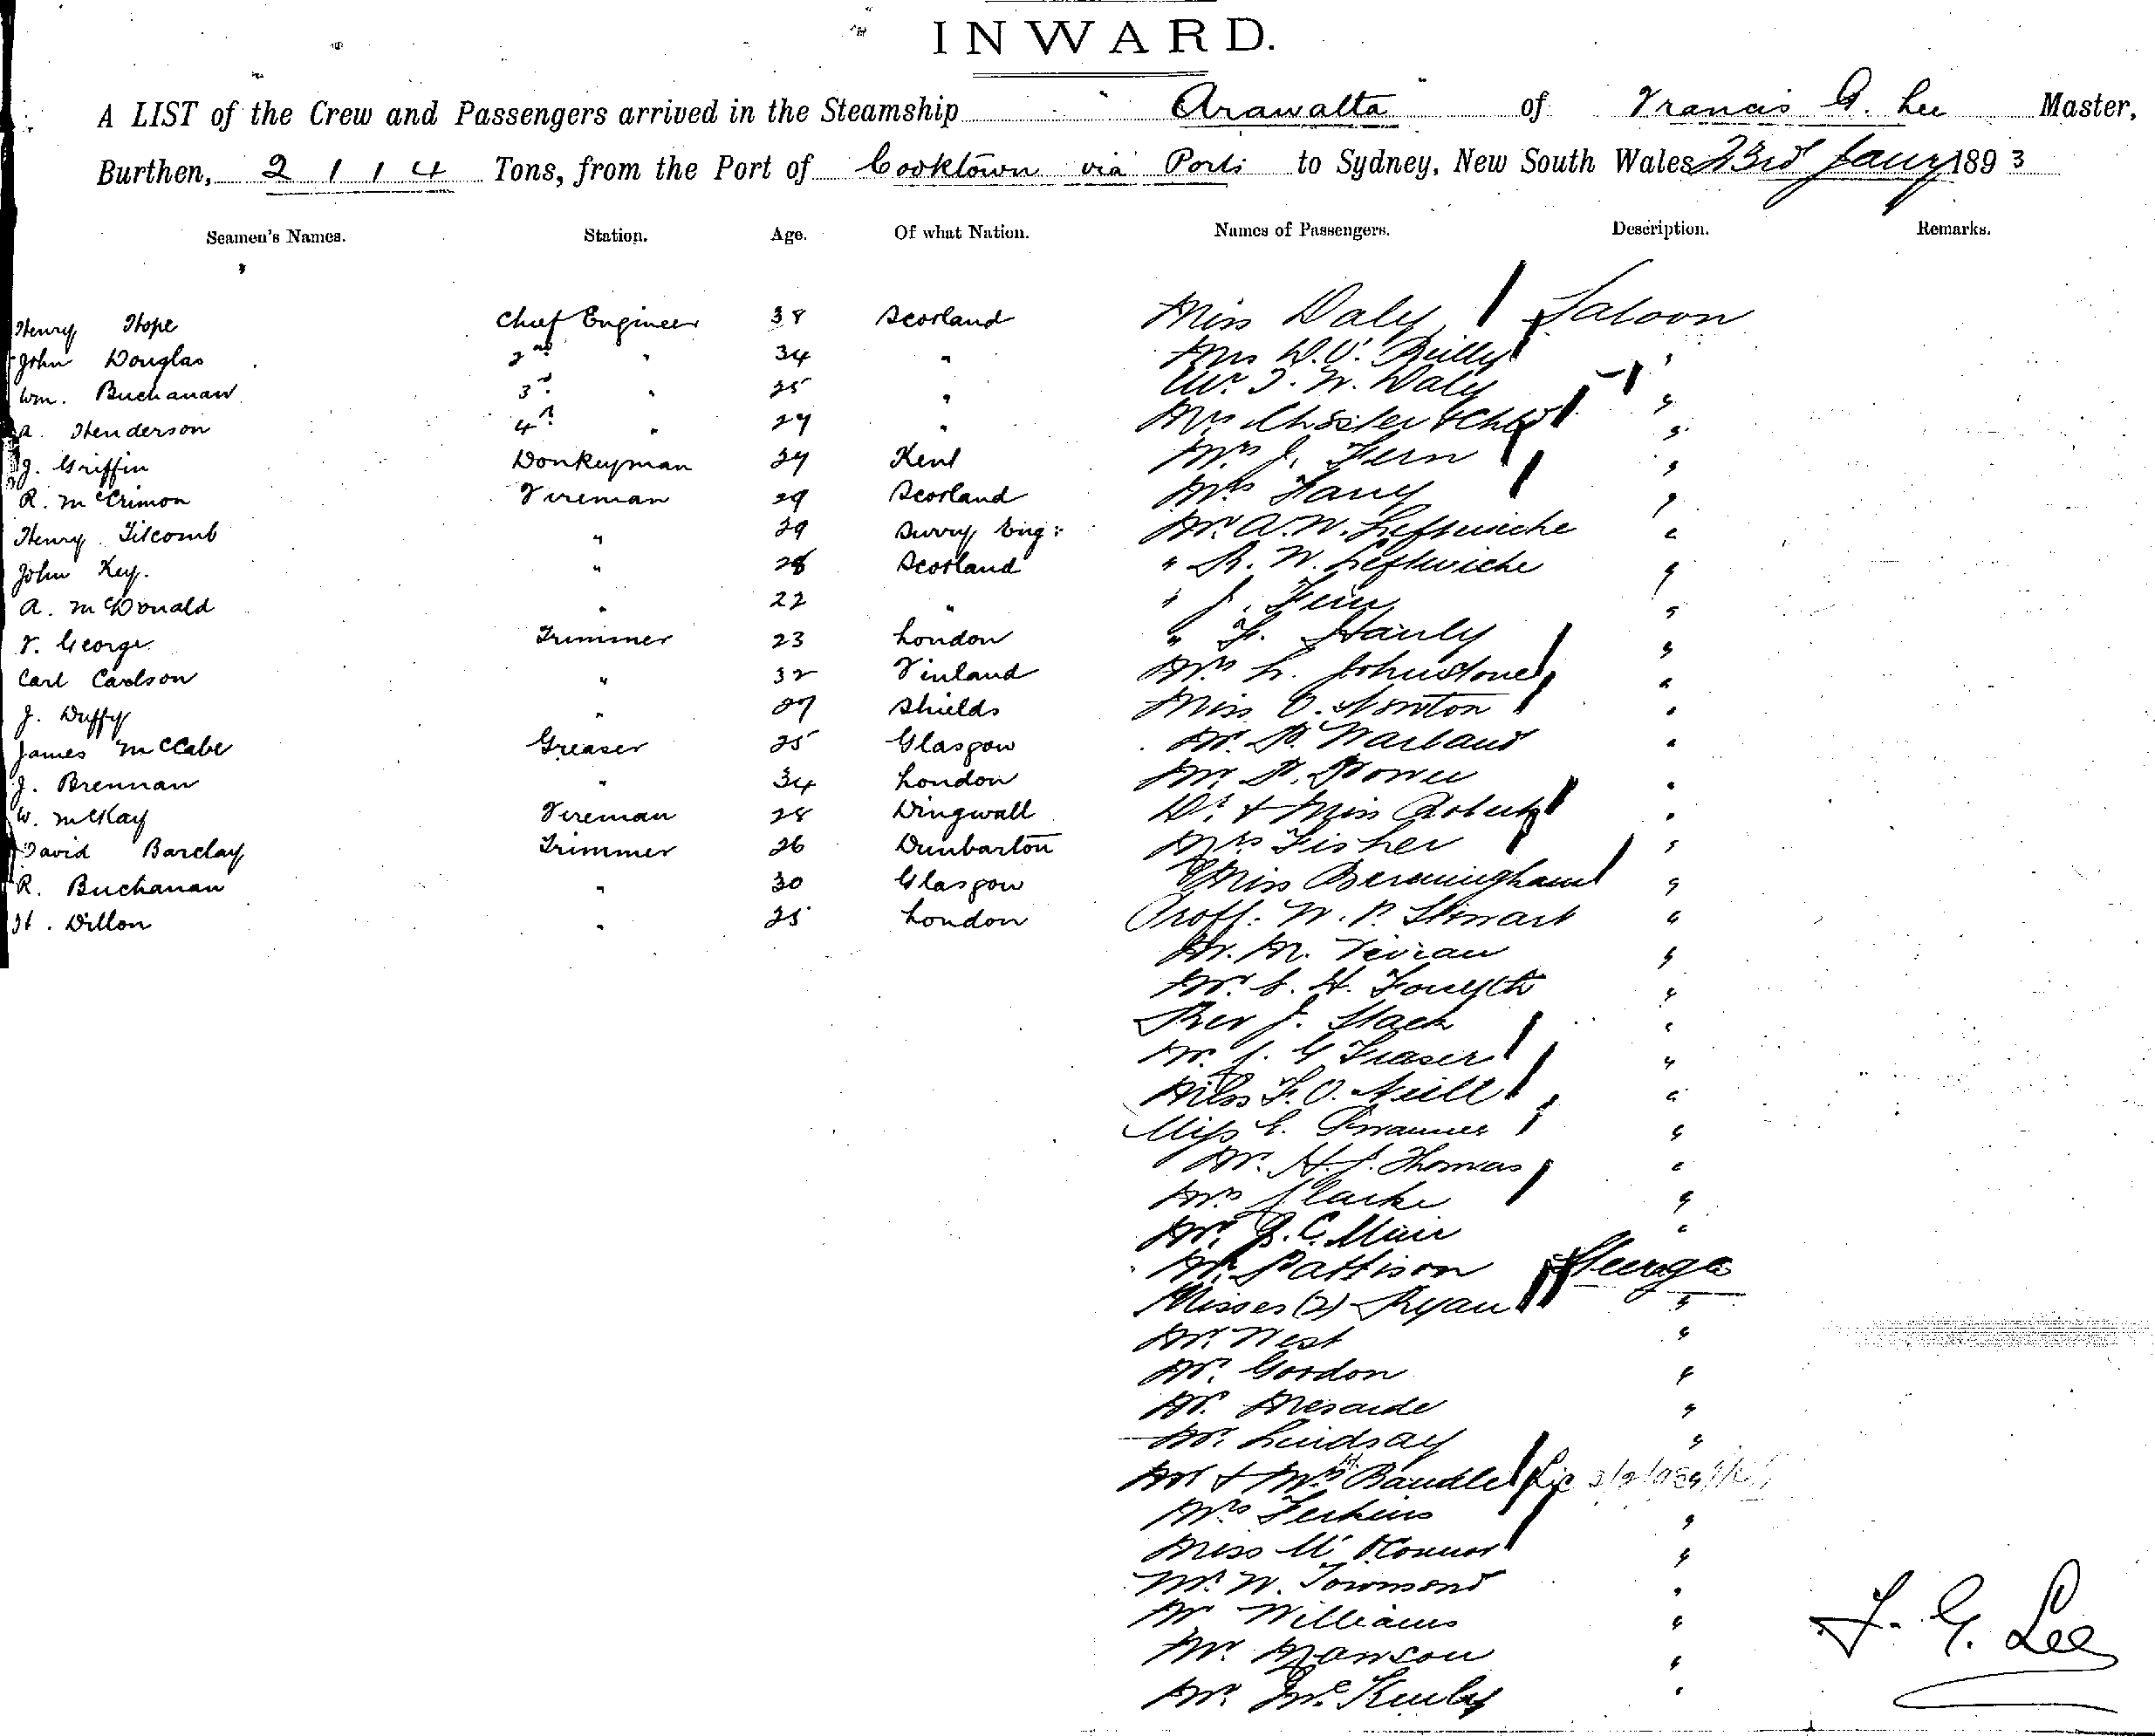 INWARD.
A LIST of the Crew and Passengers arrived in the Steamship Arawatta of Francis G. Lee Master,
Burthen, 2114 Tons, from the Port of Cooktown via Ports to Sydney, New South Wales 23rd Jany 1893
Seamen's Names. Station. Age. Of what Nation. Names of Passengers. Description. Remarks.
Henry Hope Chief Engineer 38 Scotland Miss Daly Saloon
John Douglas 2nd " 34 " Reilly "
Wm. Buchanan 3rd " 25 " Daly "
A. Henderson 4th " 27 " "
J. Griffin Donkeyman 34 Kent Mrs J. Fern "
R. McCrimon Fireman 29 Scotland Mrs "
Henry Titcomb " 39 Surry Eng: Mr A. W. Leftwiche "
John Key. " 28 Scotland " R. W. Leftwiche "
A. McDonald " 22 " " J. "
F. George Trimmer 23 London " "
Carl Carlson " 32 Finland Mrs L. Johnstone "
J. Duffy " 27 Shields Miss Norton "
James McCabe Greaser 25 Glasgow Mr. "
J. Brennan " 34 London Mr. "
W. McKay Fireman 28 Dingwall Dr. & Miss Roberts "
David Barclay Trimmer 26 Dunbarton Mrs Fisher "
R. Buchanan " 30 Glasgow Miss Bermingham "
H. Dillon " 25 London Proff: W. P. Stewart "
Mr. M. Vivian "
Mr. H. Forsyth "
Rev J. Slack "
Mr. J. G Fraser "
Miss F. O. Neill "
Miss E. "
Mr. H. J. Thomas "
Mrs Clarke "
Mr. C. Muir "
Mr. Pattison Steerage
Misses (2) Ryan "
Mr. West "
Mr. Gordon "
Mr. "
Mr. Lindsay "
Mr & Mrs
Mrs Perkins "
Miss O'Connor "
Mr. W. Townsend "
Mr Williams "
Mr. Manson "
Mr. "
F. G. Lee